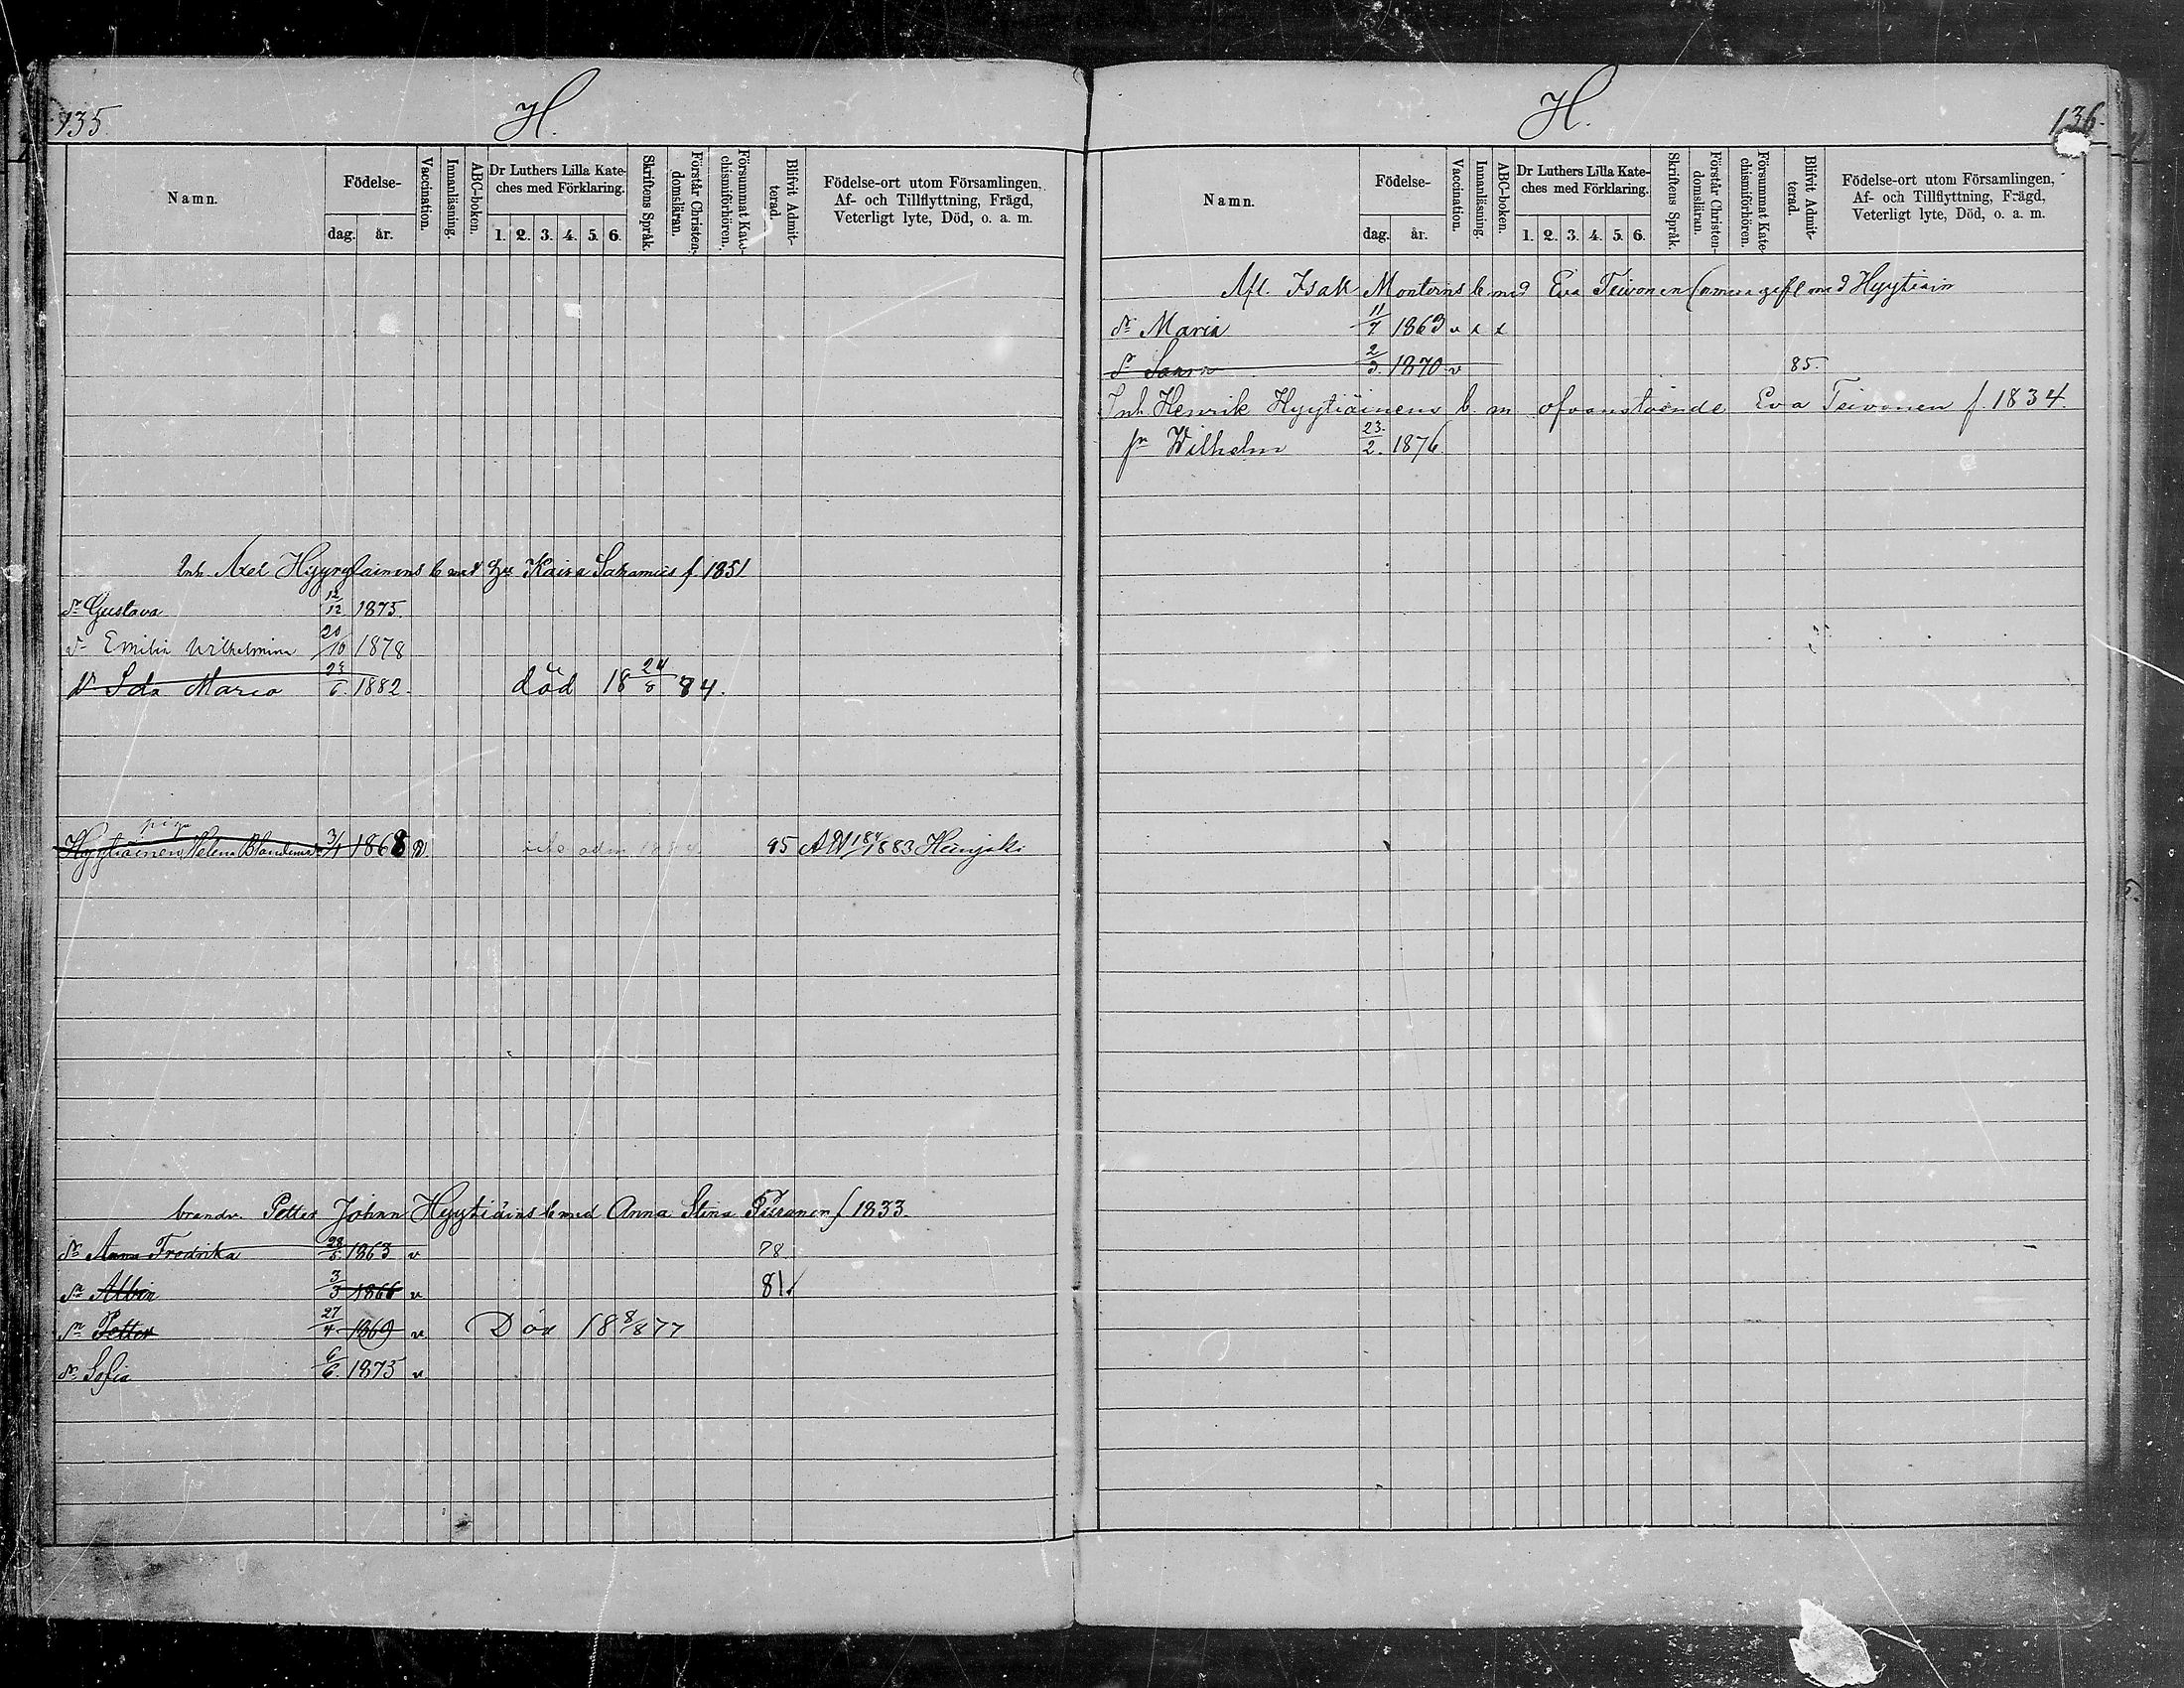 135.
H.
Namn.
Födelse-
dag.
år.
Vaccination.
Innanläsning.
ABC-boken.
Dr Luthers Lilla Kate-
ches med Förklaring.
1. 2. 3. 4. 5. 6.
Skriftens Språk.
Förstår Christen-
domsläran.
Försummat Kate-
chismiförhören.
Blifvit Admit-
terad.
Födelse-ort utom Församlingen,
Af- och Tillflyttning, Frägd,
Veterligt lyte, Död, o. a. m.
Inh. Axel Hyyryläinens b med Kaisa f. 1851
dr Gustava 12/12 1875.
dr Emilia Wilhelmina 20/10 1878
dr Ida Maria 6. 1882. död 18 24/8 84.
piga
Hyytiäinen, Helena 3/4 1868 v. 95 1883
brandv. Petter Johan Hyytiäins b med Anna Stina f 1833.
dr Anna Fredrika 1863 v 78.
sn Albin 3/3 1866 v 81
sn Petter 27/4 1869 v Död 18 8/8 77
dr Sofia 6/6. 1873 v
H.
136.
Namn.
Födelse-
dag.
år.
Vaccination.
Innanläsning.
ABC-boken.
Dr Luthers Lilla Kate-
ches med Förklaring.
1. 2. 3. 4. 5. 6.
Skriftens Språk.
Förstår Christen-
domsläran.
Försummat Kate-
chismiförhören.
Blifvit Admit-
terad.
Födelse-ort utom Församlingen,
Af- och Tillflyttning, Frägd,
Veterligt lyte, Död, o. a. m.
Afl. Isak Montens b med Eva Teivonen (omgift med Hyytiäin
dr Maria 11/7 1863 v x x
dr 2/3. 1870 v 85.
Inh. Henrik Hyytiäinens b. m ofvanstående Eva Teivonen f. 1834.
sn Wilhelm 23./2. 1876.